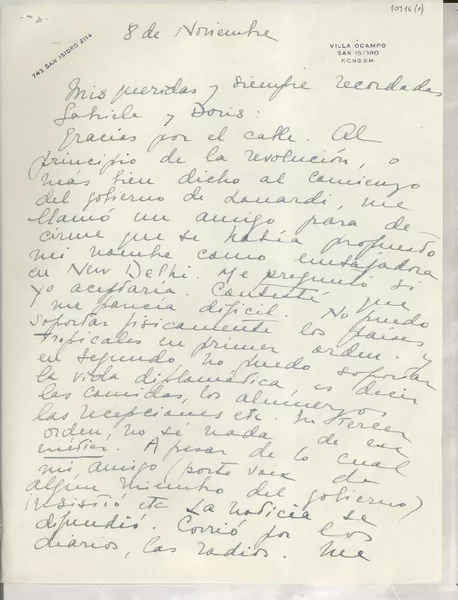 10946(1)
8 de Noviembre
743 SAN ISIDRO 2114
VILLA OCAMPO
SAN ISIDRO
F.C.N.G.B.M.
Mis queridas y siempre recordadas
Gabriela y Doris:
Gracias por el cable. Al
principio de la revolución, o
más bien dicho al comienzo
del gobierno de Lonardi, me
llamó un amigo para de
cirme que se había propuesto
mi nombre como embajadora
en New Delhi. Me preguntó si
yo aceptaría. Contesté que
me parecía difícil. No puedo
soportar fisicamente los países
tropicales en primer orden. y
en segundo no puedo soportar
la vida diplomática, es decir
las comidas, los almuerzos
las recepciones etc. En tercer
orden, no sé nada de ese
métier. A pesar de lo cual
mi amigo (porte voix de
algún miembro del gobierno)
insistió etc La noticia se
difundió. Corrió por los
diarios, las radios. Me